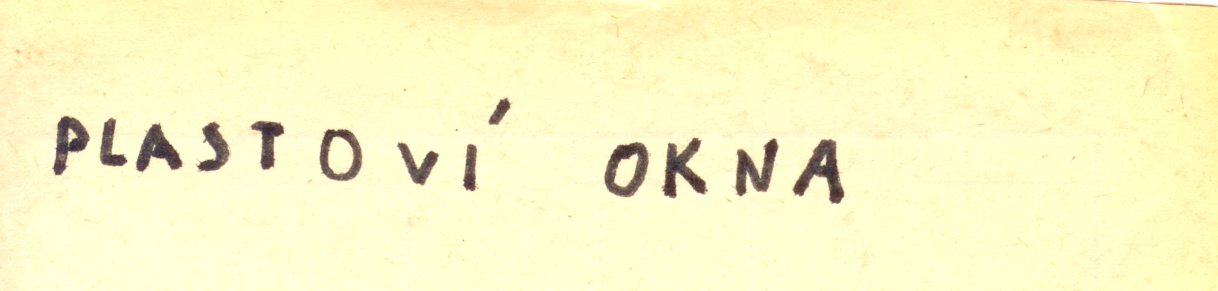 PLASTOVÍ OKNA